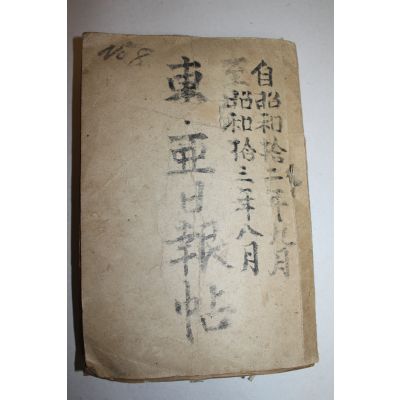 No 8
自昭和拾二年九月
至昭和拾三年八月
東亜日報帖